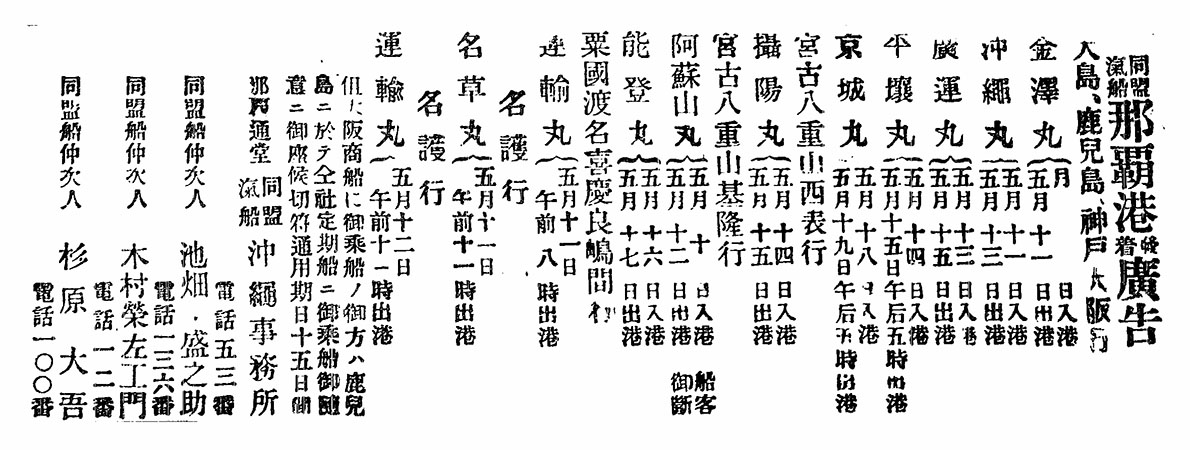 同盟汽船那覇港發着廣告
大島、鹿兒島、神戸大阪行
金澤丸 月 日入港 五月十一日出港
沖繩丸 五月十一日入港 五月十三日出港
廣運丸 五月十三日入港 五月十五日出港
平壤丸 五月十四日入港 五月十五日午后五時出港
京城丸 五月十八日入港 五月十九日午后五時出港
宮古八重山西表行
攝陽丸 五月十四日入港 五月十五日出港
宮古八重山基隆行
阿蘇山丸 五月十日入港 五月十二日出港 船客御斷
能登丸 五月十六日入港 五月十七日出港
粟國渡名喜慶良嶋間行
運輸丸 五月十一日午前八時出港
名護行
名草丸 五月十一日午前十一時出港
名護行
運輸丸 五月十二日午前十一時出港
但大阪商船に御乘船ノ御方ハ鹿兒
島ニ於テ仝社定期船ニ御乘船御隨
意ニ御座候切符通用期日十五日間
那覇通堂 同盟汽船沖繩事務所
電話五三番
同盟船仲次人 池畑盛之助
電話一三六番
同盟船仲次人 木村榮左工門
電話一二番
同盟船仲次人 杉原大吾
電話一〇〇番